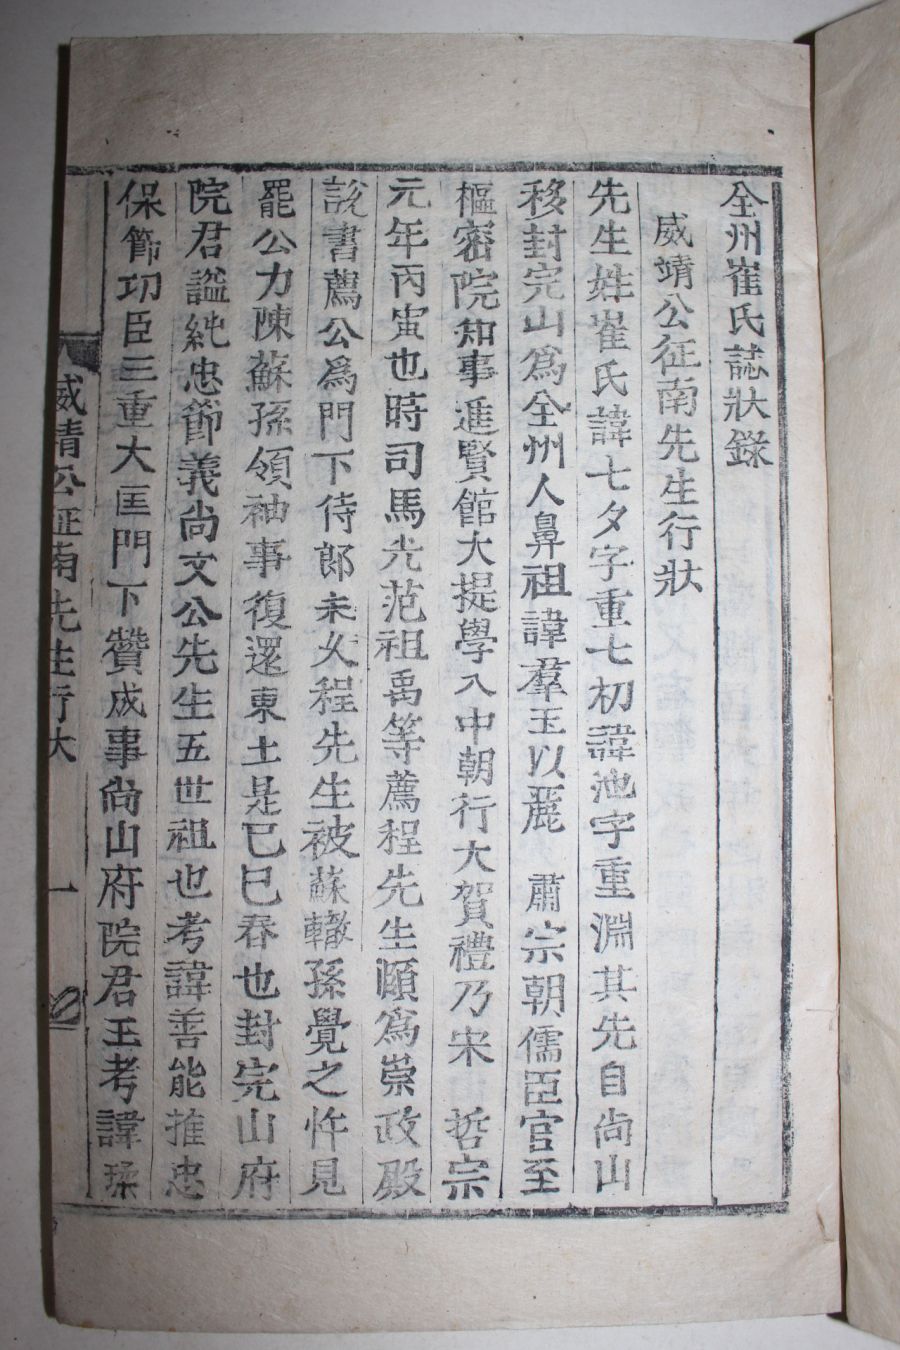 全州崔氏誌狀錄
威靖公征南先生行狀
先生姓崔氏諱七夕字重七初諱池字重淵其先自尙山
移封完山爲全州人鼻祖諱羣玉以麗 肅宗朝儒臣官至
樞密院知事進賢館大提學入中朝行大賀禮乃宋 哲宗
元年丙寅也時司馬光范祖禹等薦程先生頤爲崇政殿
說書薦公爲門下侍郎未久程先生被蘇轍孫覺之忤見
罷公力陳蘇孫領袖事復還東土是己巳春也封完山府
院君謚純忠節義尙文公先生五世祖也考諱善能推忠
保節功臣三重大匡門下贊成事尙山府院君王考諱瑈
威靖公征南先生行狀 一